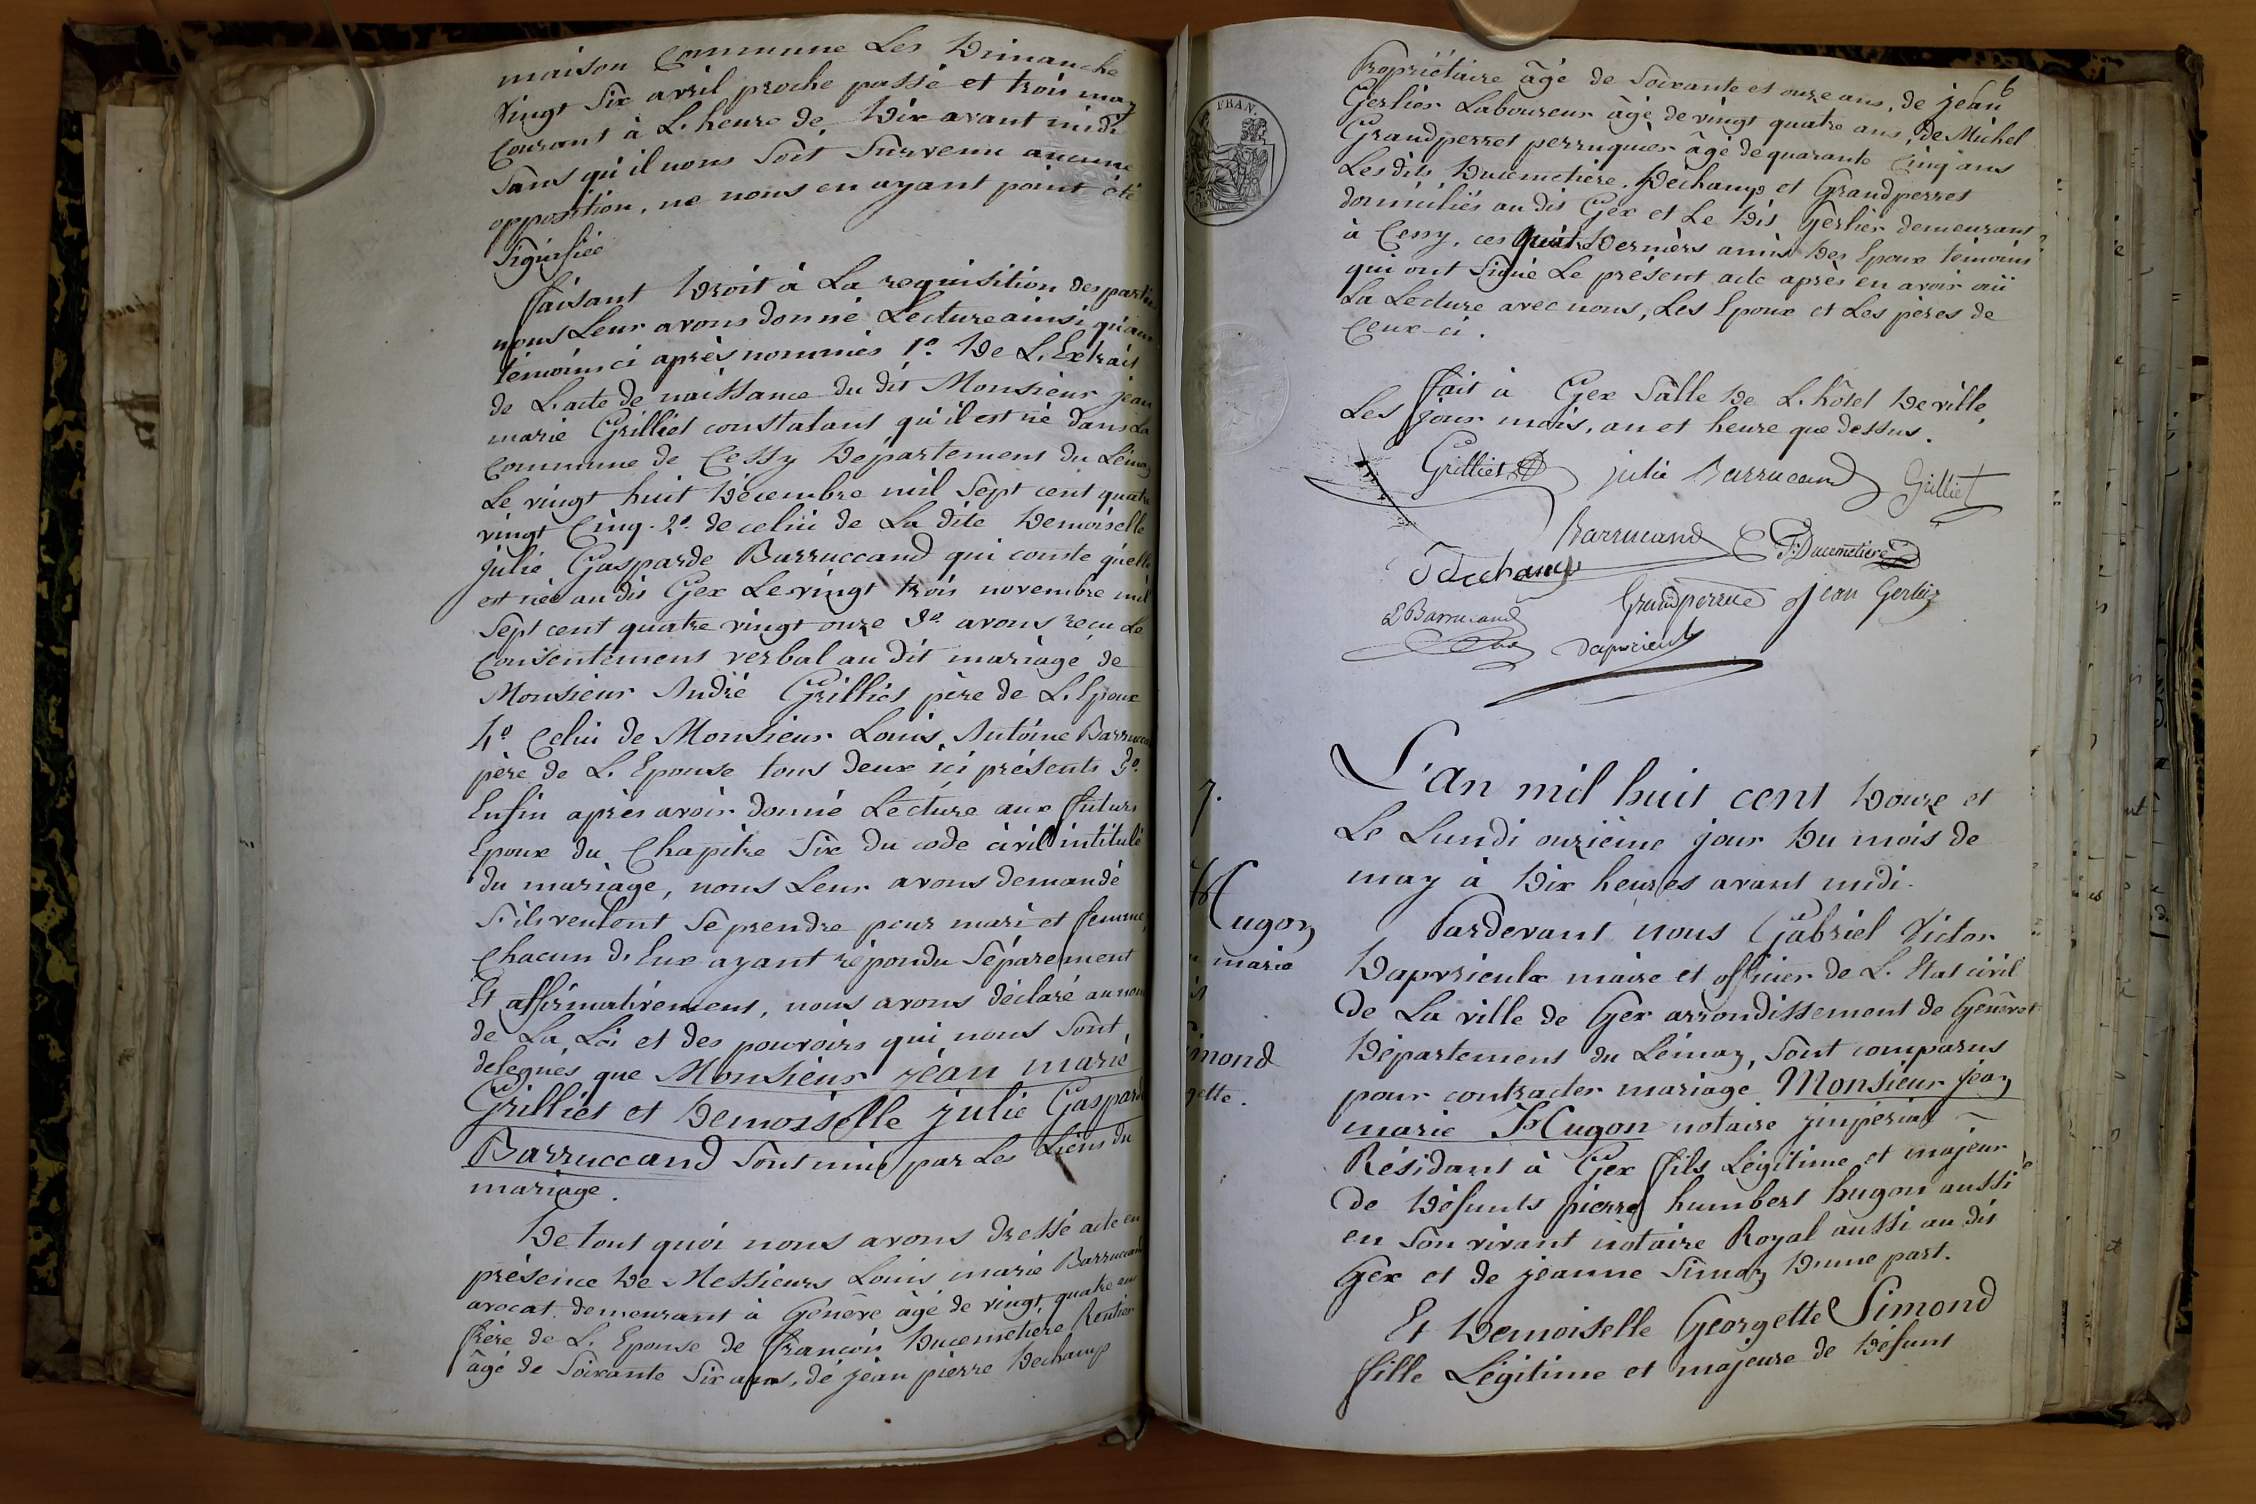 maison Commune Les Dimanche
vingt Six avril proche passé et trois may
Courant à L'heure de Dix avant midi
Sans qu'il nous Soit Survenu aucune
opposition, ne nous en ayant point été
Signifiée
faisant Droit à La requisition des parties
nous Leur avons donné Lecture ainsi qu'aux
témoins ci après nommés 1º. De L'Extrait
de L'acte de naissance du dit Monsieur jean
marie Grilliet constatant qu'il est né dans La
Commune de Cessy Département du Léman
Le vingt huit Décembre mil Sept cent quatre
vingt Cinq. 2º. de celui de La dite Demoiselle
julie Gasparde Barruccand qui conste qu'elle
est née au dit Gex Le vingt trois novembre mil
Sept cent quatre vingt onze 3º. avons reçu Le
Consentement verbal au dit mariage de
Monsieur André Grilliet père de L'Epoux
4º Celui de Monsieur Louis Antoine Barruccand
père de L'Epouse tous deux ici présents 5º.
Enfin après avoir donné Lecture aux futurs
Epoux du Chapitre Six du code civil intitulé
du mariage, nous Leur avons demandé
S'ils veulent Se prendre pour mari et femme,
Chacun d'Eux ayant répondu Séparement
Et affirmativement, nous avons déclaré au nom
de La Loi et des pouvoirs qui nous Sont
delegués que Monsieur jéan marie
Grilliet et Demoiselle julie Gasparde
Barruccand Sont unis par Les Liens du
mariage.
De tout quoi nous avons dressé acte en
présence De Messieurs Louis marie Barruccand
avocat demeurant à Genêve âgé de vingt quatre ans
frère de L'Epouse de françois Ducemetiere Rentier
âgé de Soixante Six ans, de jéan pierre Dechamp
6
Propriétaire âgé de Soixante et onze ans, de jéan
Gerlier Laboureur âgé de vingt quatre ans, de Michel
Grandperret perruquier âgé de quarante Cinq ans
Les dits Ducemetiere, Dechamp et Grandperret
domiciliés au dit Gex et Le Dit Gerlier demeurant
à Cessy, ces quatre Derniers amis Des Epoux témoins
qui ont Signé Le présent acte après en avoir oüi
La Lecture avec nous, Les Epoux et Les pères de
Ceux-ci.
fait à Gex Salle De L'hôtel De ville,
Les jour mois, an et heure que dessus.
Grilliet julie Barrucand Grilliet
Barrucand F. Ducemetiere
Dechamp
Grandperret jean Gerlier
L Barrucand
Dapvrieulx
7.
Hugon
marie
Simond
L'an mil huit cent Douze et
Le Lundi onzième jour Du mois de
may à Dix heures avant midi.
Pardevant nous Gabriel Victor
Dapvrieulx maire et officier de L'Etat civil
de La ville de Gex arrondissement de Genêve
Département du Léman, Sont comparus
pour contracter mariage Monsieur jean
marie Hugon notaire jmpérial
Résidant à Gex fils Légitime et majeur
de Défunts pierre humbert hugon aussi
en Son vivant notaire Royal aussi au dit
Gex et de jeanne Simon D'une part.
Et Demoiselle Georgette Simond
fille Légitime et majeure de Défunt